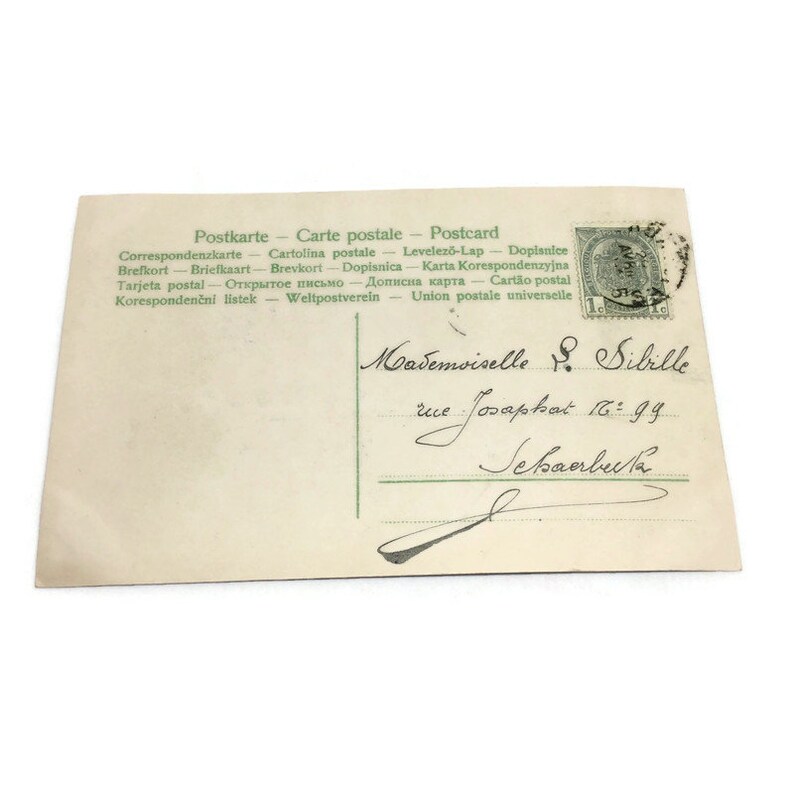 Postkarte – Carte postale – Postcard
Correspondenzkarte – Cartolina postale – Levelező-Lap – Dopisnice
Brefkort – Briefkaart – Brevkort – Dopisnica – Karta Korespondenzyjna
Tarjeta postal – Открытое письмо – Дописна карта – Cartão postal
Korespondenční listek – Weltpostverein – Union postale universelle
1c 1c
AVRIL
Mademoiselle S. Sibille
rue Josaphat No 99
Schaerbeek